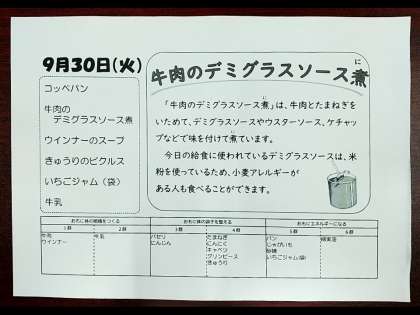 9月30日(火)
コッペパン
牛肉の
デミグラスソース煮
ウインナーのスープ
きゅうりのピクルス
いちごジャム（袋）
牛乳
牛肉のデミグラスソース煮
に
「牛肉のデミグラスソース煮」は、牛肉とたまねぎを
いためて、デミグラスソースやウスターソース、ケチャッ
プなどで味を付けて煮ています。
今日の給食に使われているデミグラスソースは、米
粉を使っているため、小麦アレルギーが
ある人も食べることができます。
おもに体の組織をつくる おもに体の調子を整える おもにエネルギーになる
1群 2群 3群 4群 5群 6群
牛肉 牛乳 パセリ たまねぎ パン
ウインナー にんじん にんにく じゃがいも
キャベツ 砂糖
グリンピース いちごジャム(袋)
きゅうり